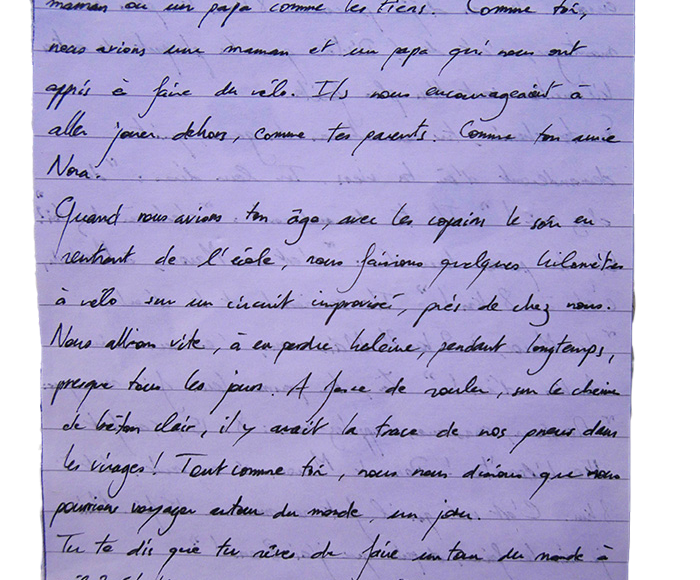 maman ou un papa comme les tiens. Comme toi,
nous avions une maman et un papa qui nous ont
appris à faire du vélo. Ils nous encourageaient à
aller jouer dehors, comme tes parents. Comme ton amie
Nora.
Quand nous avions ton âge, avec les copains le soir en
rentrant de l'école, nous faisions quelques kilomètres
à vélo sur un circuit improvisé, près de chez nous.
Nous allions vite, à en perdre haleine, pendant longtemps,
presque tous les jours. A force de rouler, sur le chemin
de béton clair, il y avait la trace de nos pneus dans
les virages! Tout comme toi, nous nous disions que nous
pourrions voyager autour du monde, un jour.
Tu te dis que tu rêves de faire un tour du monde à